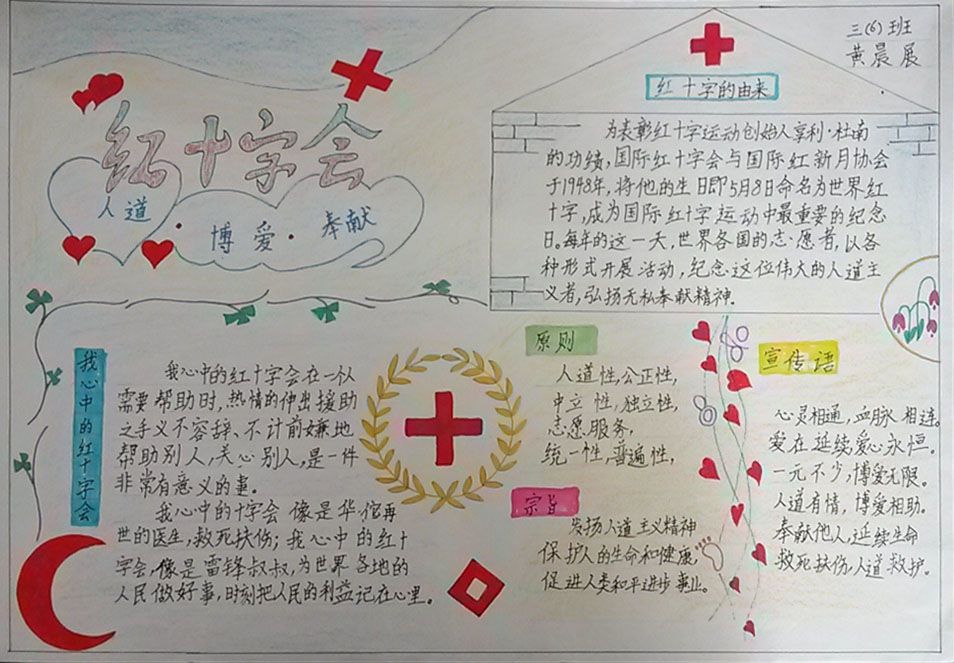 三(6)班
黄晨展
红十字会
人道·博爱·奉献
红十字的由来
为表彰红十字运动创始人享利·杜南
的功绩,国际红十字会与国际红新月协会
于1948年,将他的生日即5月8日命名为世界红
十字,成为国际红十字运动中最重要的纪念
日。每年的这一天,世界各国的志愿者,以各
种形式开展活动,纪念这位伟大的人道主
义者,弘扬无私奉献精神.
我心中的红十字会
我心中的红十字会在一个人
需要帮助时,热情的伸出援助
之手义不容辞、不计前嫌地
帮助别人,关心别人,是一件
非常有意义的事。
我心中的十字会像是华佗再
世的医生,救死扶伤;我心中的红十
字会,像是雷锋叔叔,为世界各地的
人民做好事,时刻把人民的利益记在心里。
原则
人道性,公正性,
中立性,独立性,
志愿服务,
统一性,普遍性,
宗旨
发扬人道主义精神
保护人的生命和健康,
促进人类和平进步事业。
宣传语
心灵相通,血脉相连
爱在延续,爱心永恒。
一元不少,博爱无限。
人道有情,博爱相助。
奉献他人,延续生命
救死扶伤,人道救护。